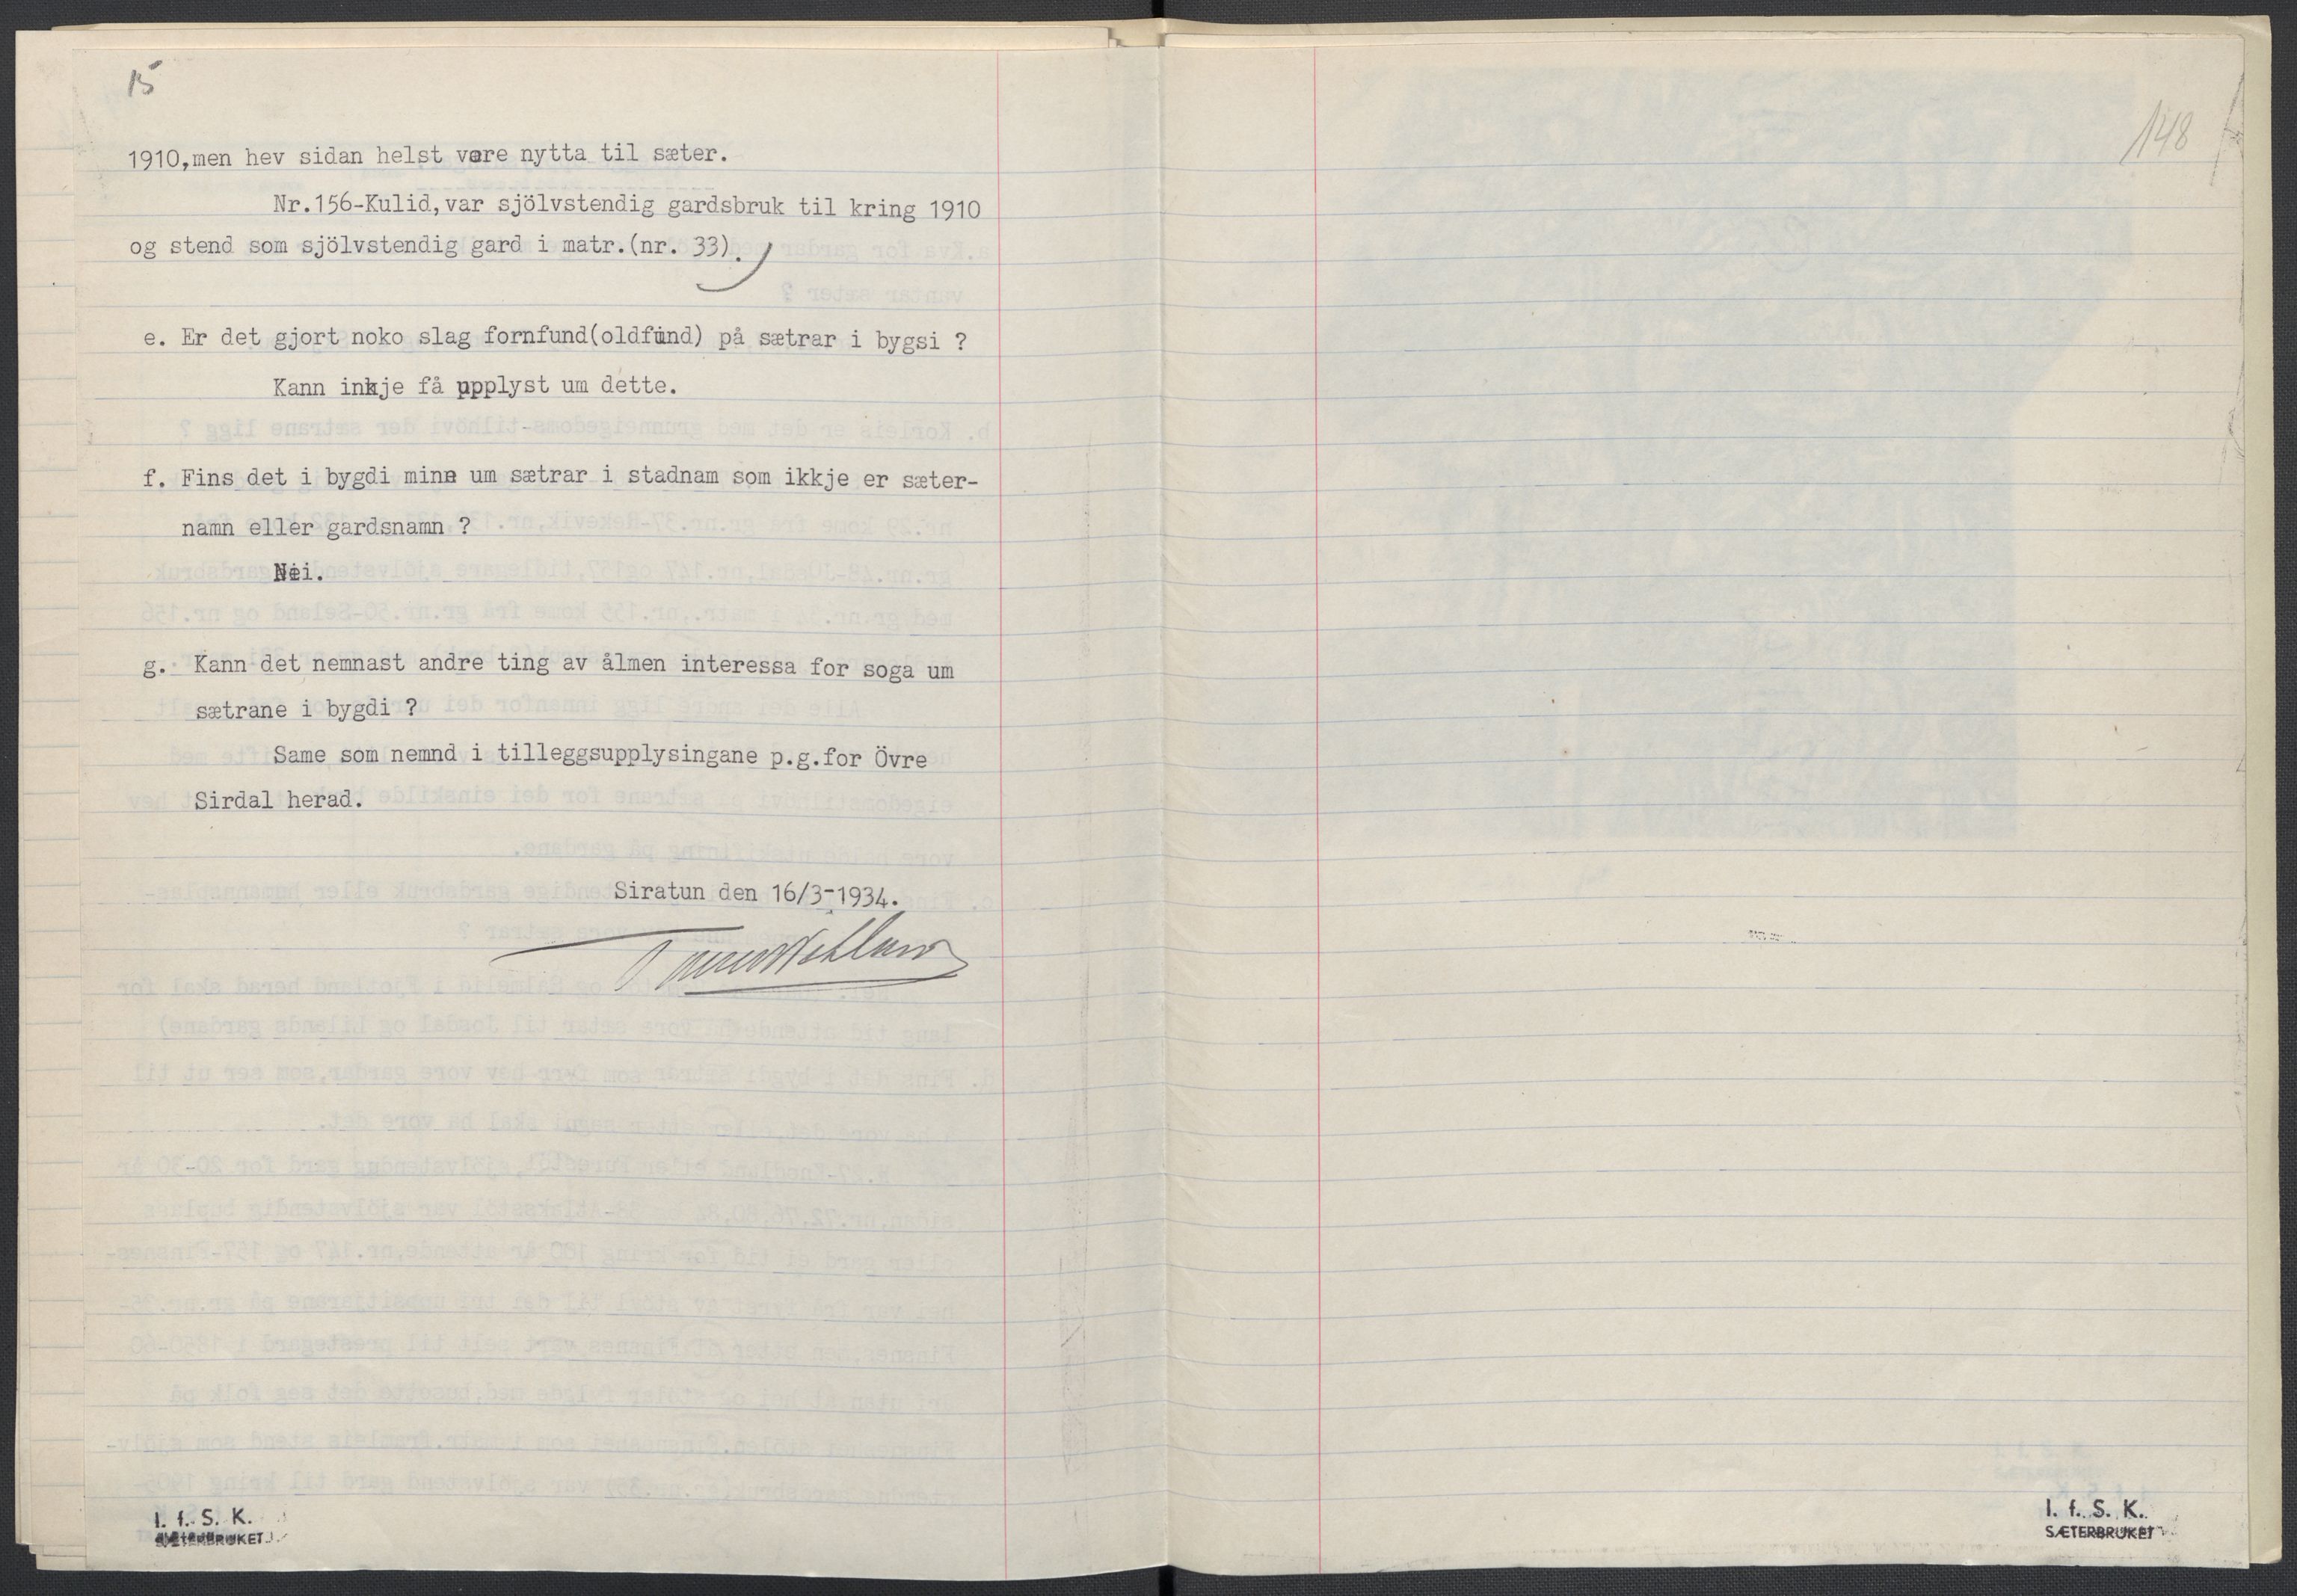 15
1910,men hev sidan helst vore nytta til sæter.
Nr.156-Kulid,var sjölvstendig gardsbruk til kring 1910
og stend som sjölvstendig gard i matr.(nr. 33).
e. Er det gjort noko slag fornfund(oldfund) på sætrar i bygsi ?
Kann inkje få upplyst um dette.
f. Fins det i bygdi minne um sætrar i stadnam som ikkje er sæter-
namn eller gardsnamn ?
Nei.
g. Kann det nemnast andre ting av ålmen interessa for soga um
sætrane i bygdi ?
Same som nemnd i tilleggsupplysingane p.g.for Övre
Sirdal herad.
Siratun den 16/3-1934.
I. f. S. K.
SÆTERBRUKET
148
I. f. S. K.
SÆTERBRUKET